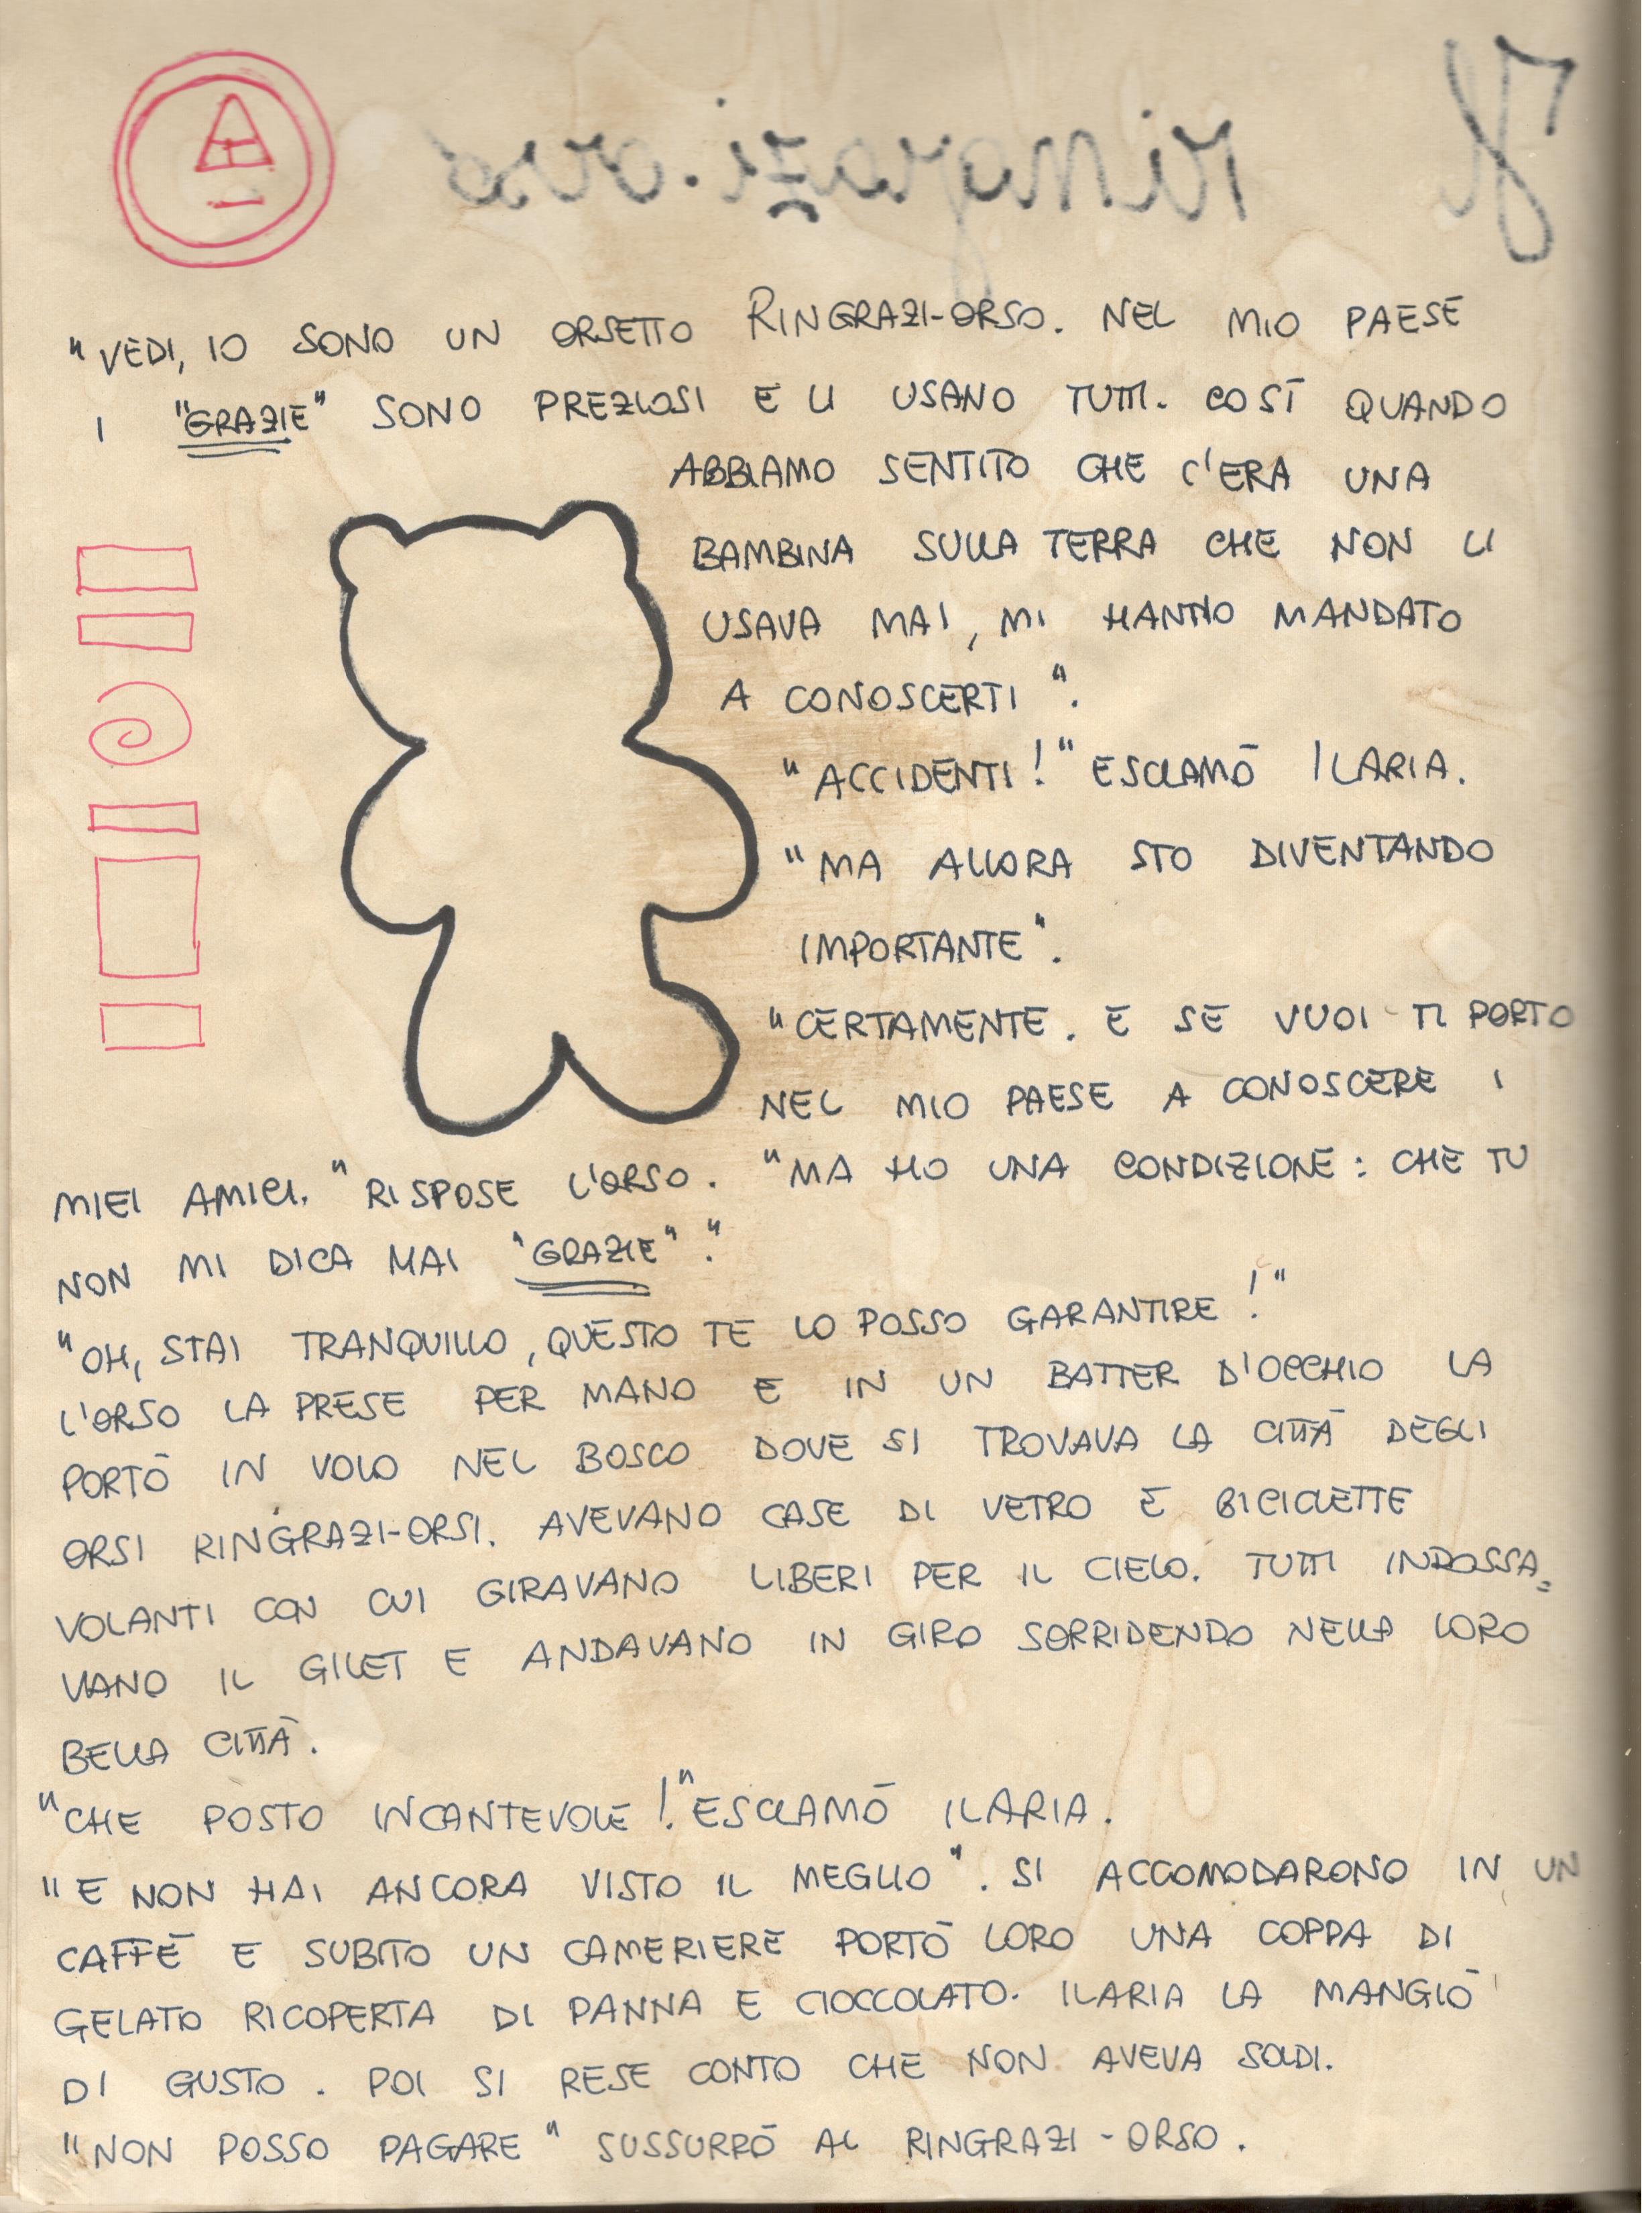 Il ringrazi-orso
"VEDI, IO SONO UN ORSETTO RINGRAZI-ORSO. NEL MIO PAESE
I "GRAZIE" SONO PREZIOSI E LI USANO TUTTI. COSÌ QUANDO
ABBIAMO SENTITO CHE C'ERA UNA
BAMBINA SULLA TERRA CHE NON LI
USAVA MAI, MI HANNO MANDATO
A CONOSCERTI".
"ACCIDENTI!" ESCLAMÒ ILARIA.
"MA ALLORA STO DIVENTANDO
IMPORTANTE".
"CERTAMENTE. E SE VUOI TI PORTO
NEL MIO PAESE A CONOSCERE I
MIEI AMICI." RISPOSE L'ORSO. "MA HO UNA CONDIZIONE: CHE TU
NON MI DICA MAI "GRAZIE"."
"OH, STAI TRANQUILLO, QUESTO TE LO POSSO GARANTIRE!"
L'ORSO LA PRESE PER MANO E IN UN BATTER D'OCCHIO LA
PORTÒ IN VOLO NEL BOSCO DOVE SI TROVAVA LA CITTÀ DEGLI
ORSI RINGRAZI-ORSI. AVEVANO CASE DI VETRO E BICICLETTE
VOLANTI CON CUI GIRAVANO LIBERI PER IL CIELO. TUTTI INDOSSA=
VANO IL GILET E ANDAVANO IN GIRO SORRIDENDO NELLA LORO
BELLA CITTÀ.
"CHE POSTO INCANTEVOLE!" ESCLAMÒ ILARIA.
"E NON HAI ANCORA VISTO IL MEGLIO". SI ACCOMODARONO IN UN
CAFFÈ E SUBITO UN CAMERIERE PORTÒ LORO UNA COPPA DI
GELATO RICOPERTA DI PANNA E CIOCCOLATO. ILARIA LA MANGIÒ
DI GUSTO. POI SI RESE CONTO CHE NON AVEVA SOLDI.
"NON POSSO PAGARE" SUSSURRÒ AL RINGRAZI-ORSO.